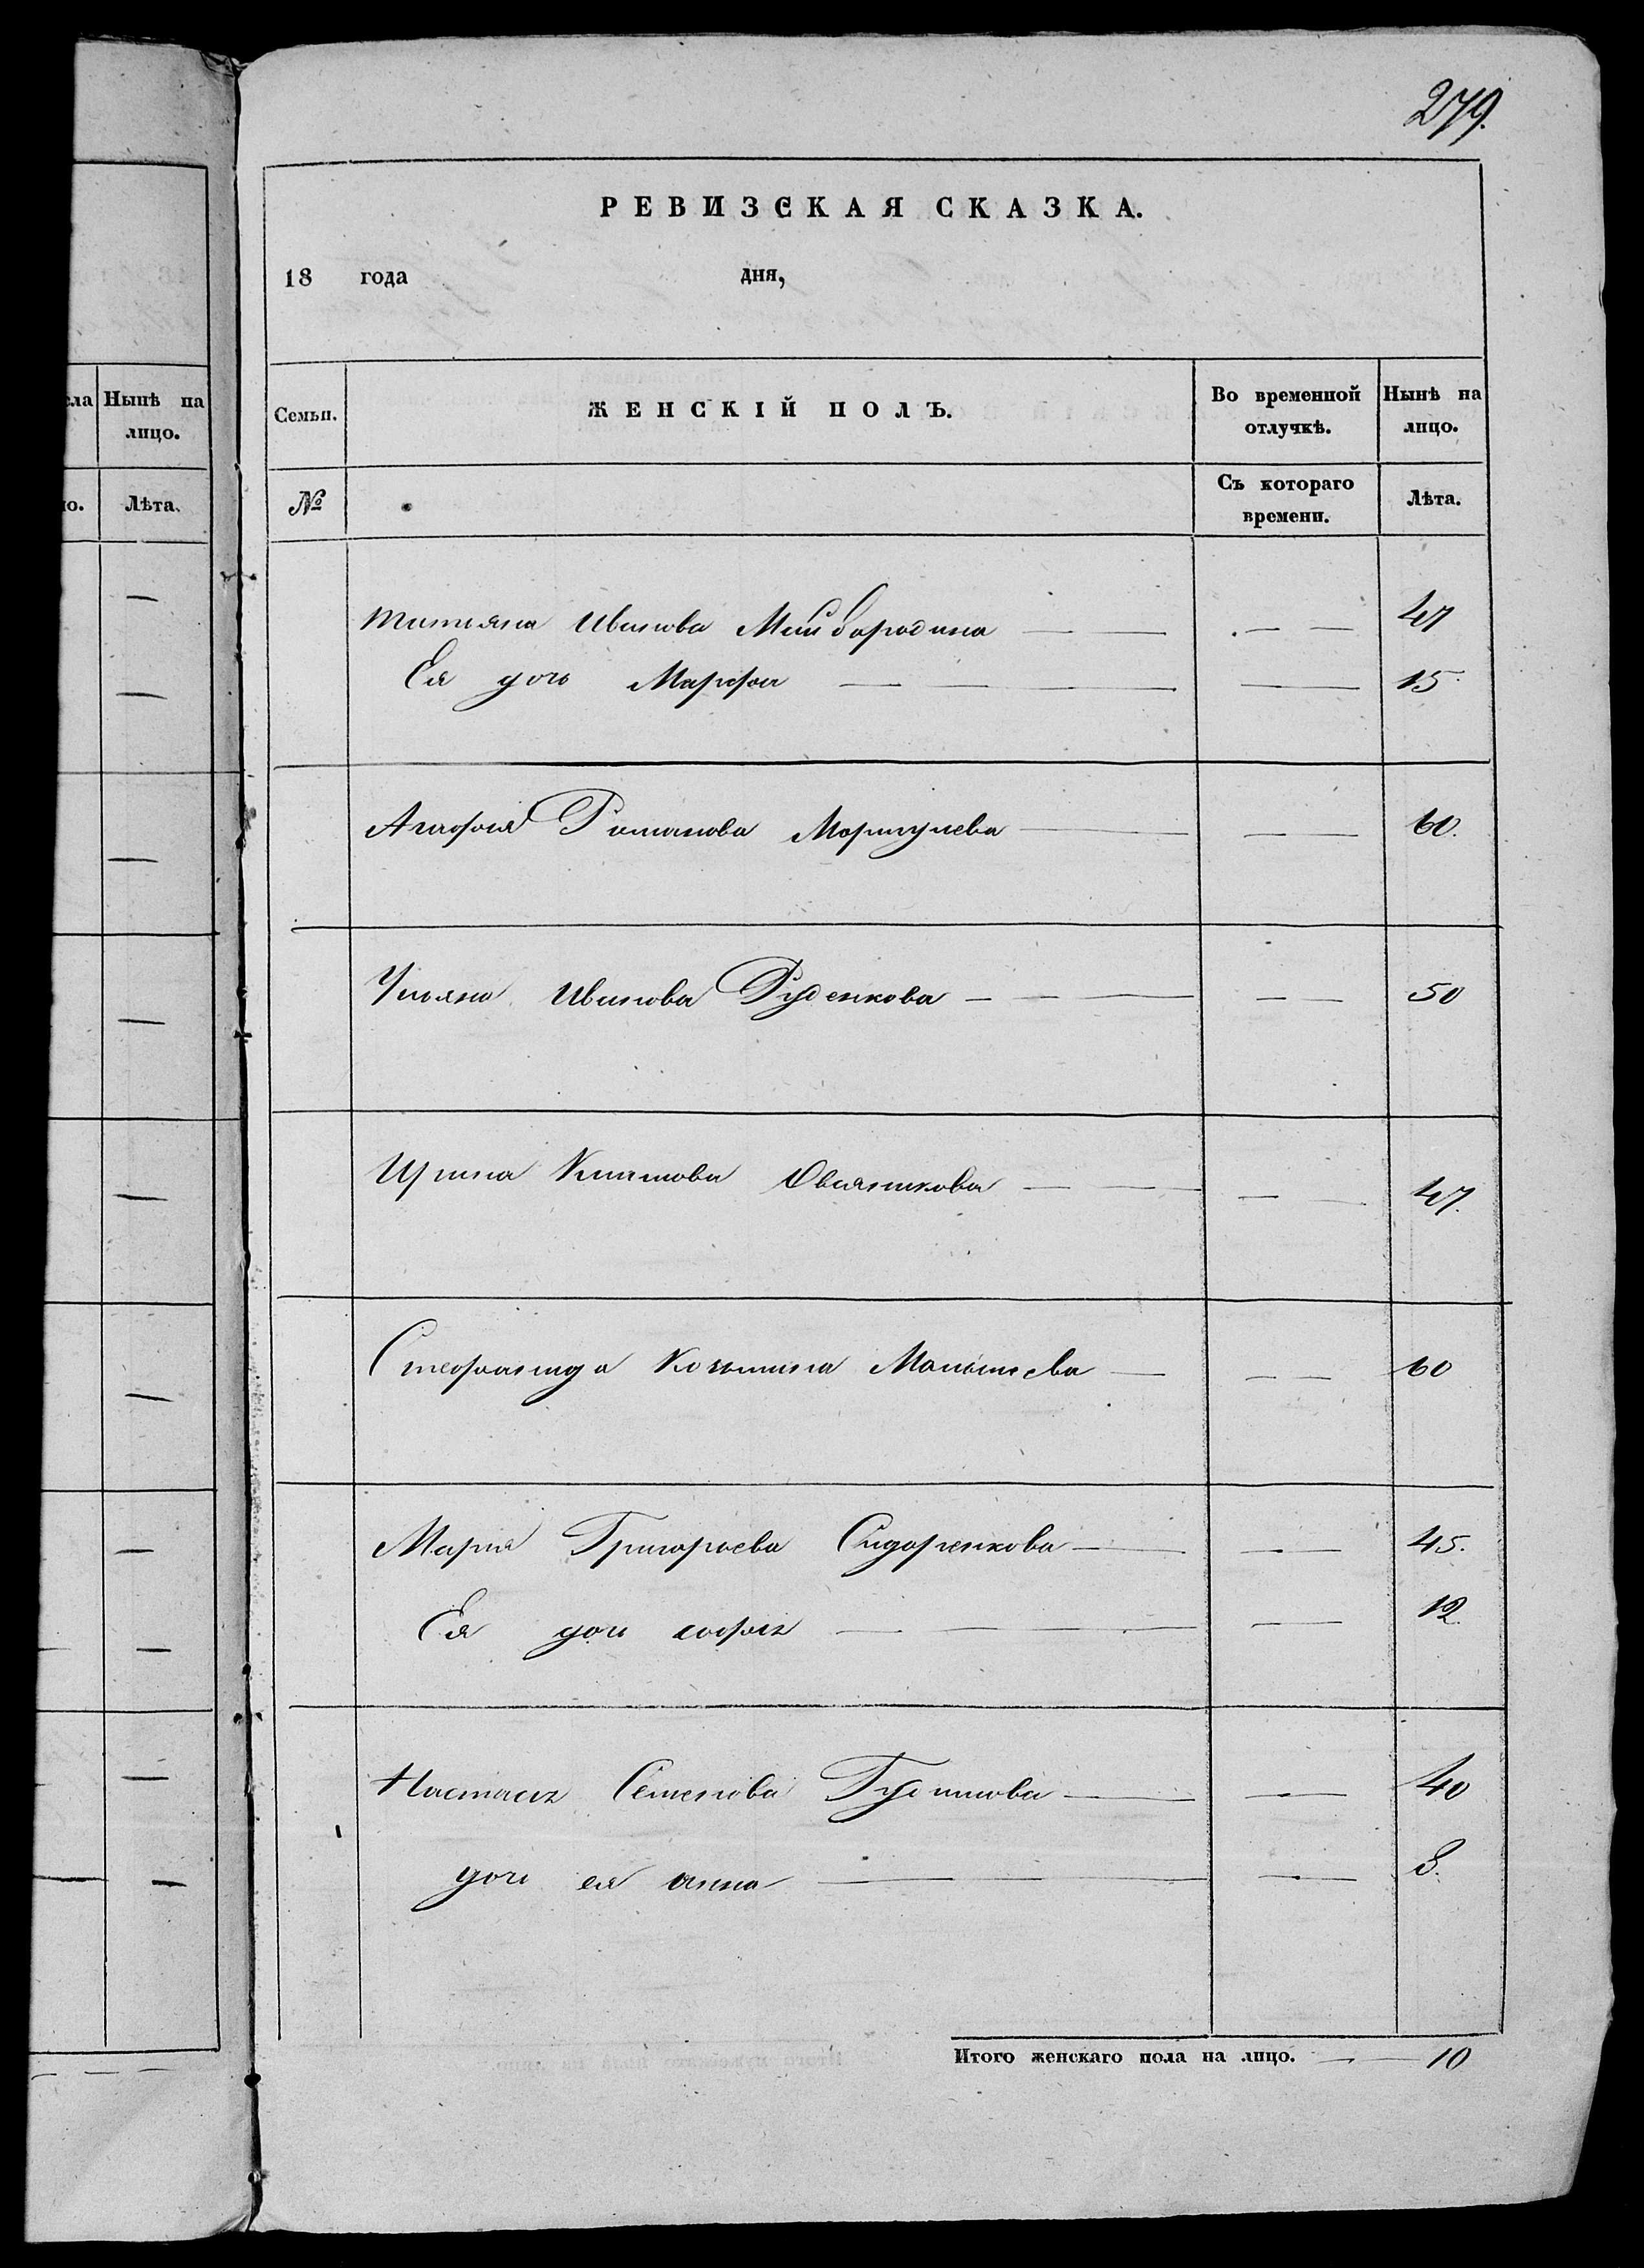 279.
РЕВИЗСКАЯ СКАЗКА.
18 года дня,
Семьи. ЖЕНСКІЙ ПОЛЪ. Во временной отлучкѣ. Нынѣ на лицо.
№ Съ котораго времени. Лѣта.
Татьяна Иванова Майбородина — — — — 47
Ея дочь Марфа — — — — 15
Агафья Романова — — — 60.
Ульяна Иванова Руденкова — — — — — 50
Ирина Овсяникова — — — — 47.
Стефанида Козьмина Малышева — — — 60
Марья Григорьева Сидоренкова — — — — 45.
Ея дочь софья — — — — — 12.
Настасья Семенова — — — 40
дочь ея анна — — — — — 8.
Итого женскаго пола на лицо. — — 10
сла Нынѣ на лицо.
ю. Лѣта.